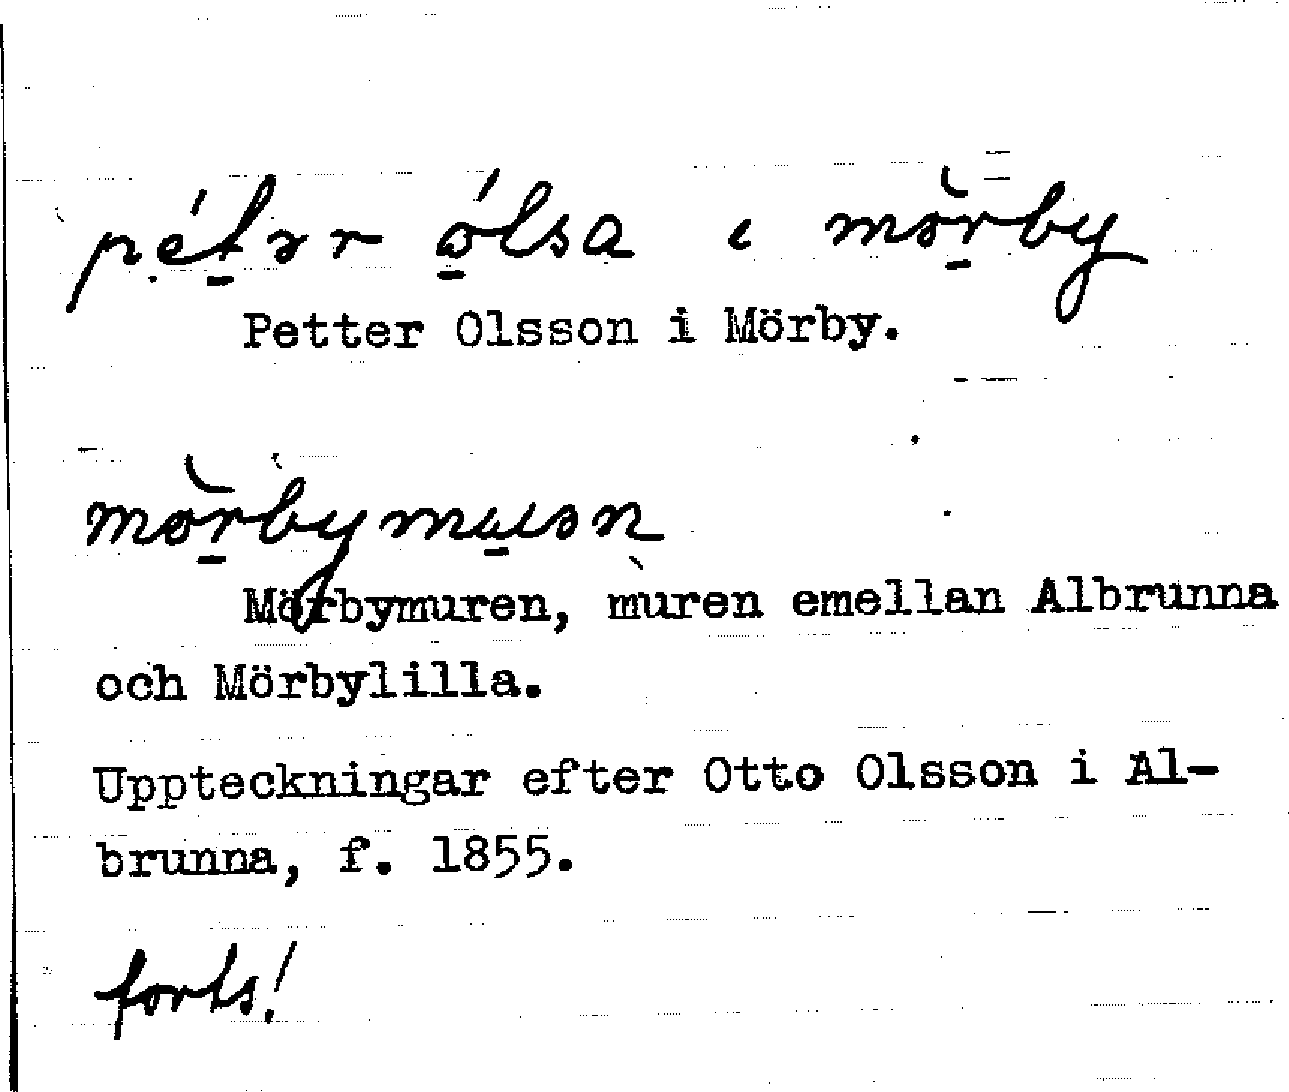 pétər ólsa ɩ mörby
Petter Olsson i Mörby.
mörbymuɩən
Mörbymuren, muren emellan Albrunna
och Mörbylilla.
Uppteckningar efter Otto Olsson i Al-
brunna, f. 1855.
forts!